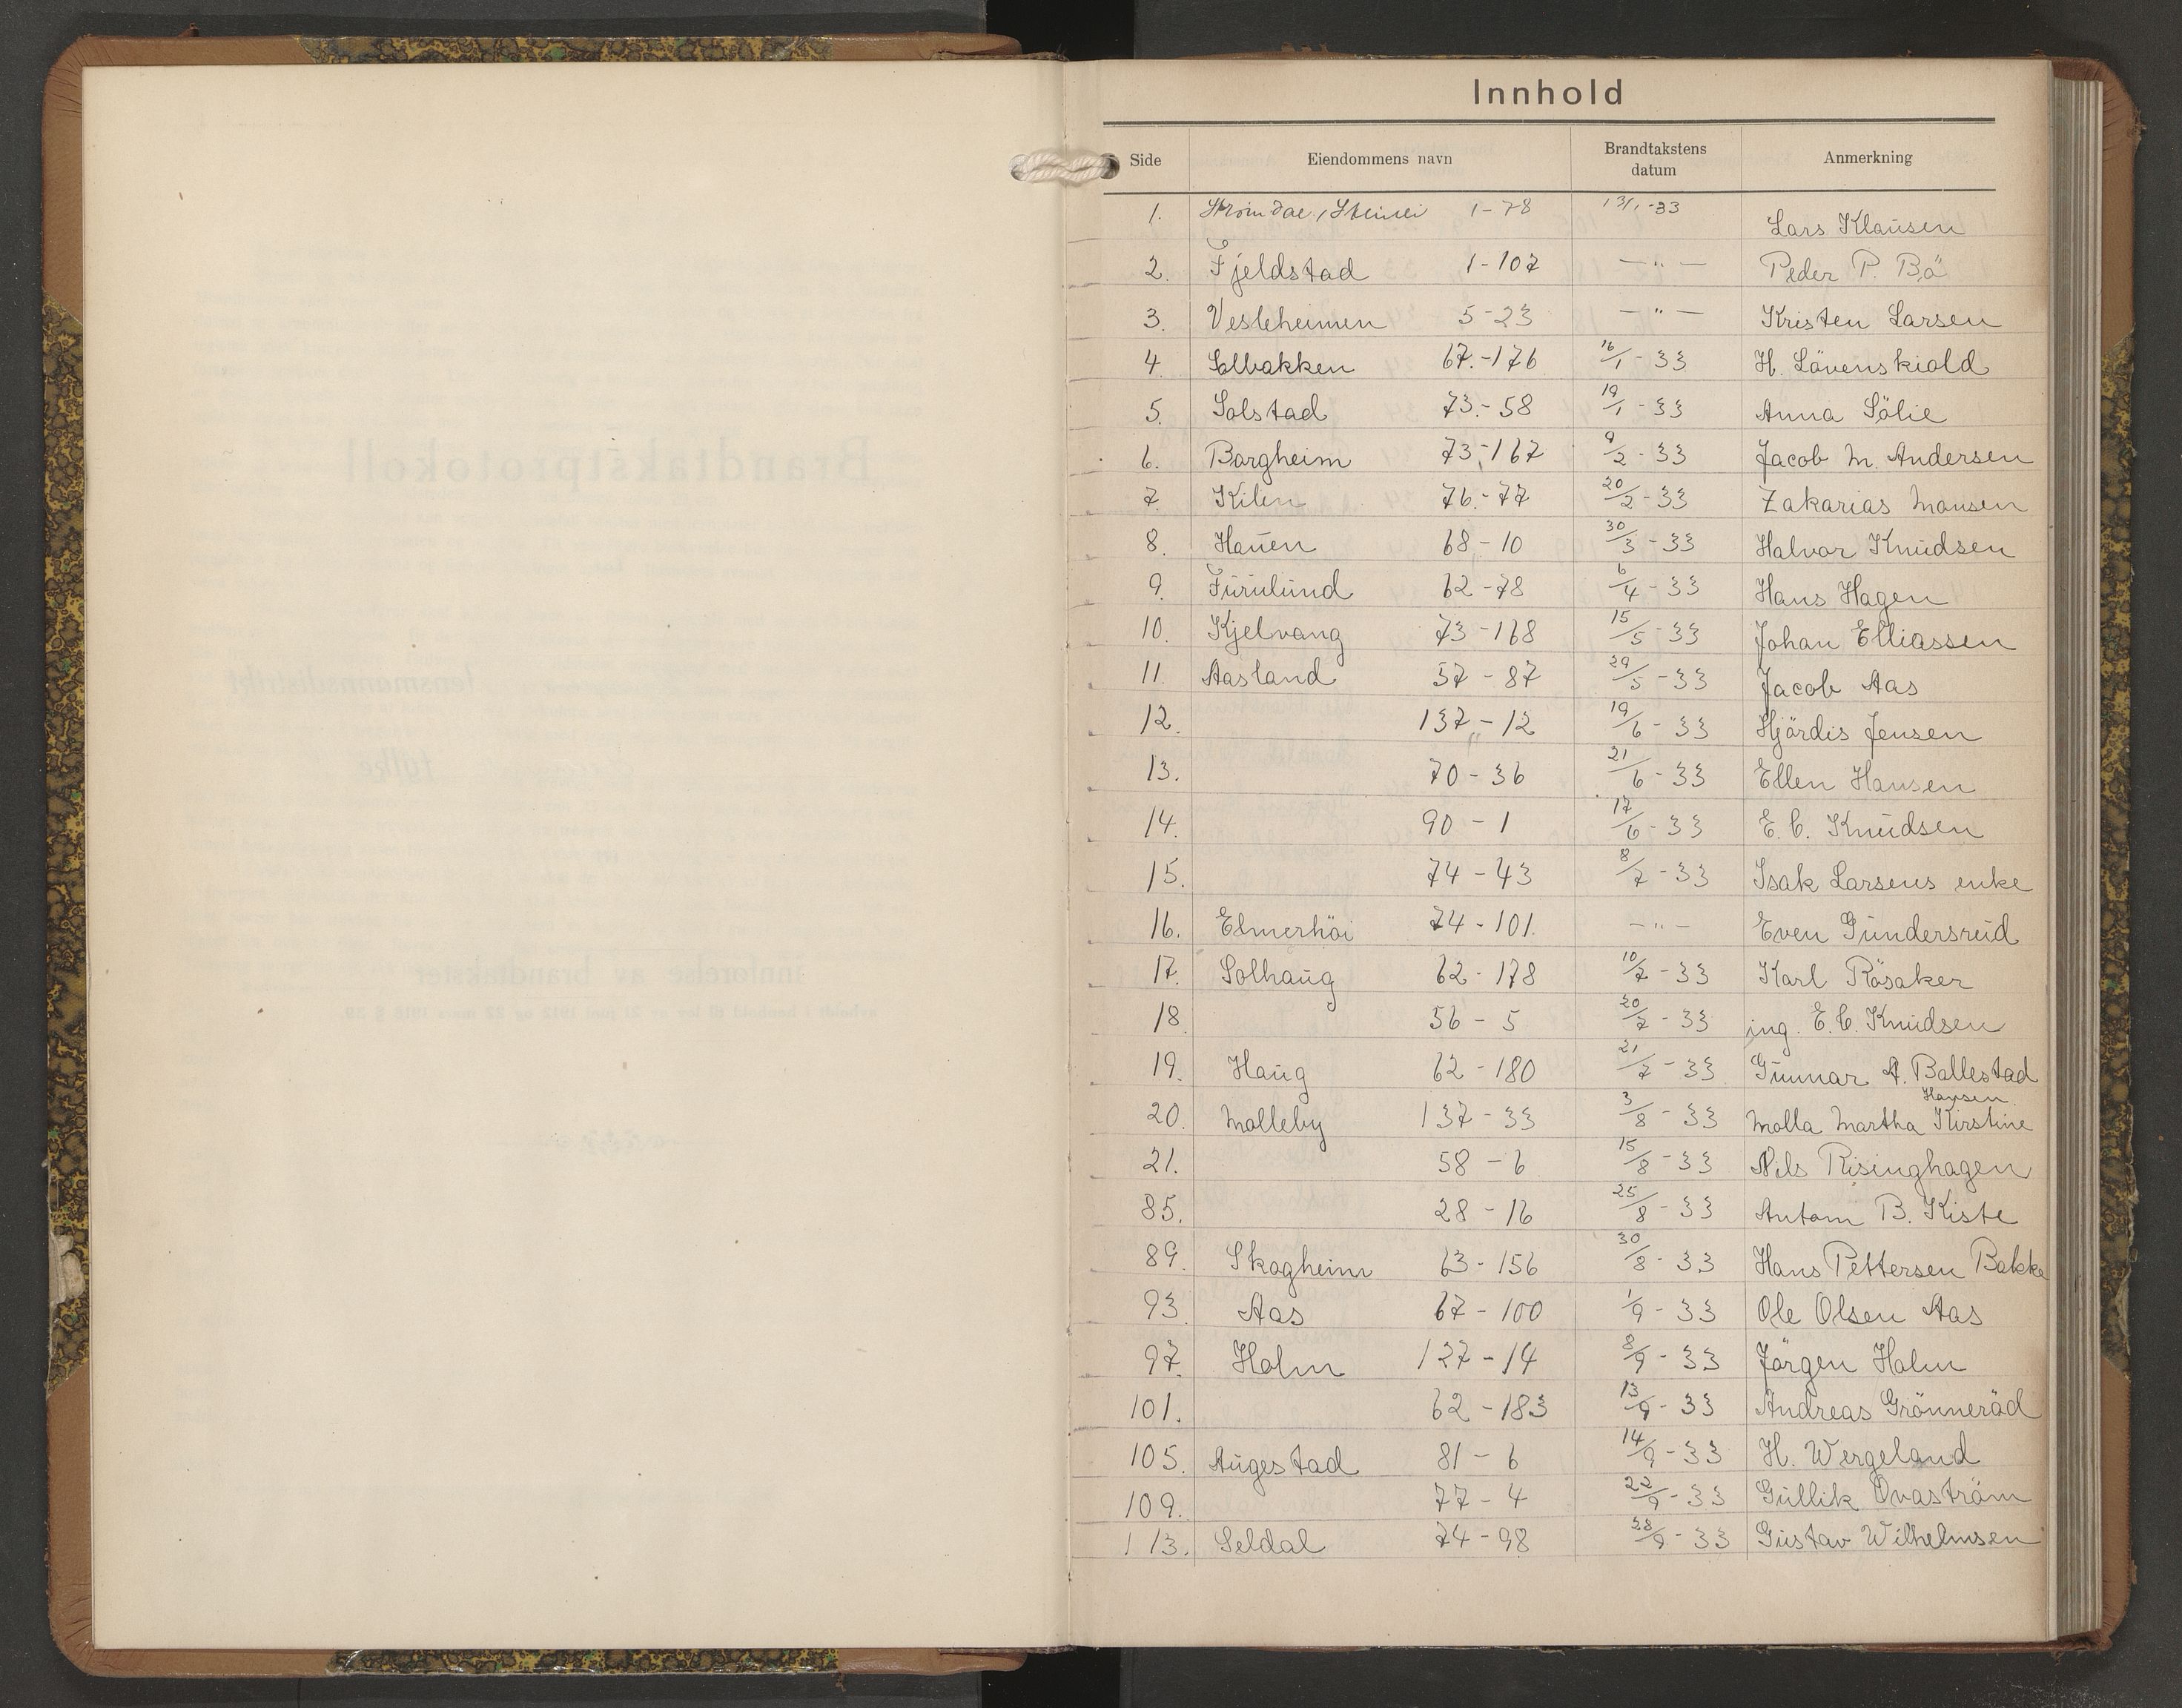 Innhold
Side Eiendommens navn Brandtakstens datum Anmerkning
1. 1-78 13/1-33 Lars Klausen
2. Fjeldstad 1-107 —„— Peder P. Bö
3. Vesleheimen 5-23 —„— Kristen Larsen
4. Elbakken 67.-176 16/1-33 H. Lövenskiold
5. Solstad 73.-58 19/1-33 Anna Sölie
6. Borgheim 73,-167 9/2-33 Jacob M. Andersen
7. Kilen 76.-77 20/2-33 Zakarias Monsen
8. Hauen 68-10 30/3-33 Halvor Knudsen
9. Furulund 62-78 6/4-33 Hans Hagen
10. Kjelvang 73-168 15/5-33 Johan Elliassen
11. Aasland 57-87 29/5-33 Jacob Aas
12. 137-12 19/6-33 Hjördis Jensen
13. 70-36 21/6-33 Ellen Hansen
14. 90-1 17/6-33 E. C. Knudsen
15. 74-43 8/7-33 Isak Larsens enke
16. Elmerhöi 74-101. —„— Even Gundersrud
17. Solhaug 62-178 10/7-33 Karl Rösaker
18. 56-5 20/7-33 ing. E. C. Knudsen
19. Haug 62-180 21/7-33 Gunnar A. Ballestad
20. Molleby 137-33 3/8-33 Molla Martha Kirstine Hansen
21. 58-6 15/8-33 Nils Risinghagen
85. 28-16 25/8-33 Antom B. Kiste
89. Skogheim 63-156 30/8-33 Hans Pettersen Bakke
93. Aas 67-100 1/9-33 Ole Olsen Aas
97. Holm 127-14 8/9-33 Jörgen Holm
101. 62-183 13/9-33 Andreas Grönneröd
105. Augestad 81-6 14/9-33 H. Wergeland
109. 77-4 22/9-33 Gullik Ovaström
113. Seldal 74-98 28/9-33 Gustav Wilhelmsen